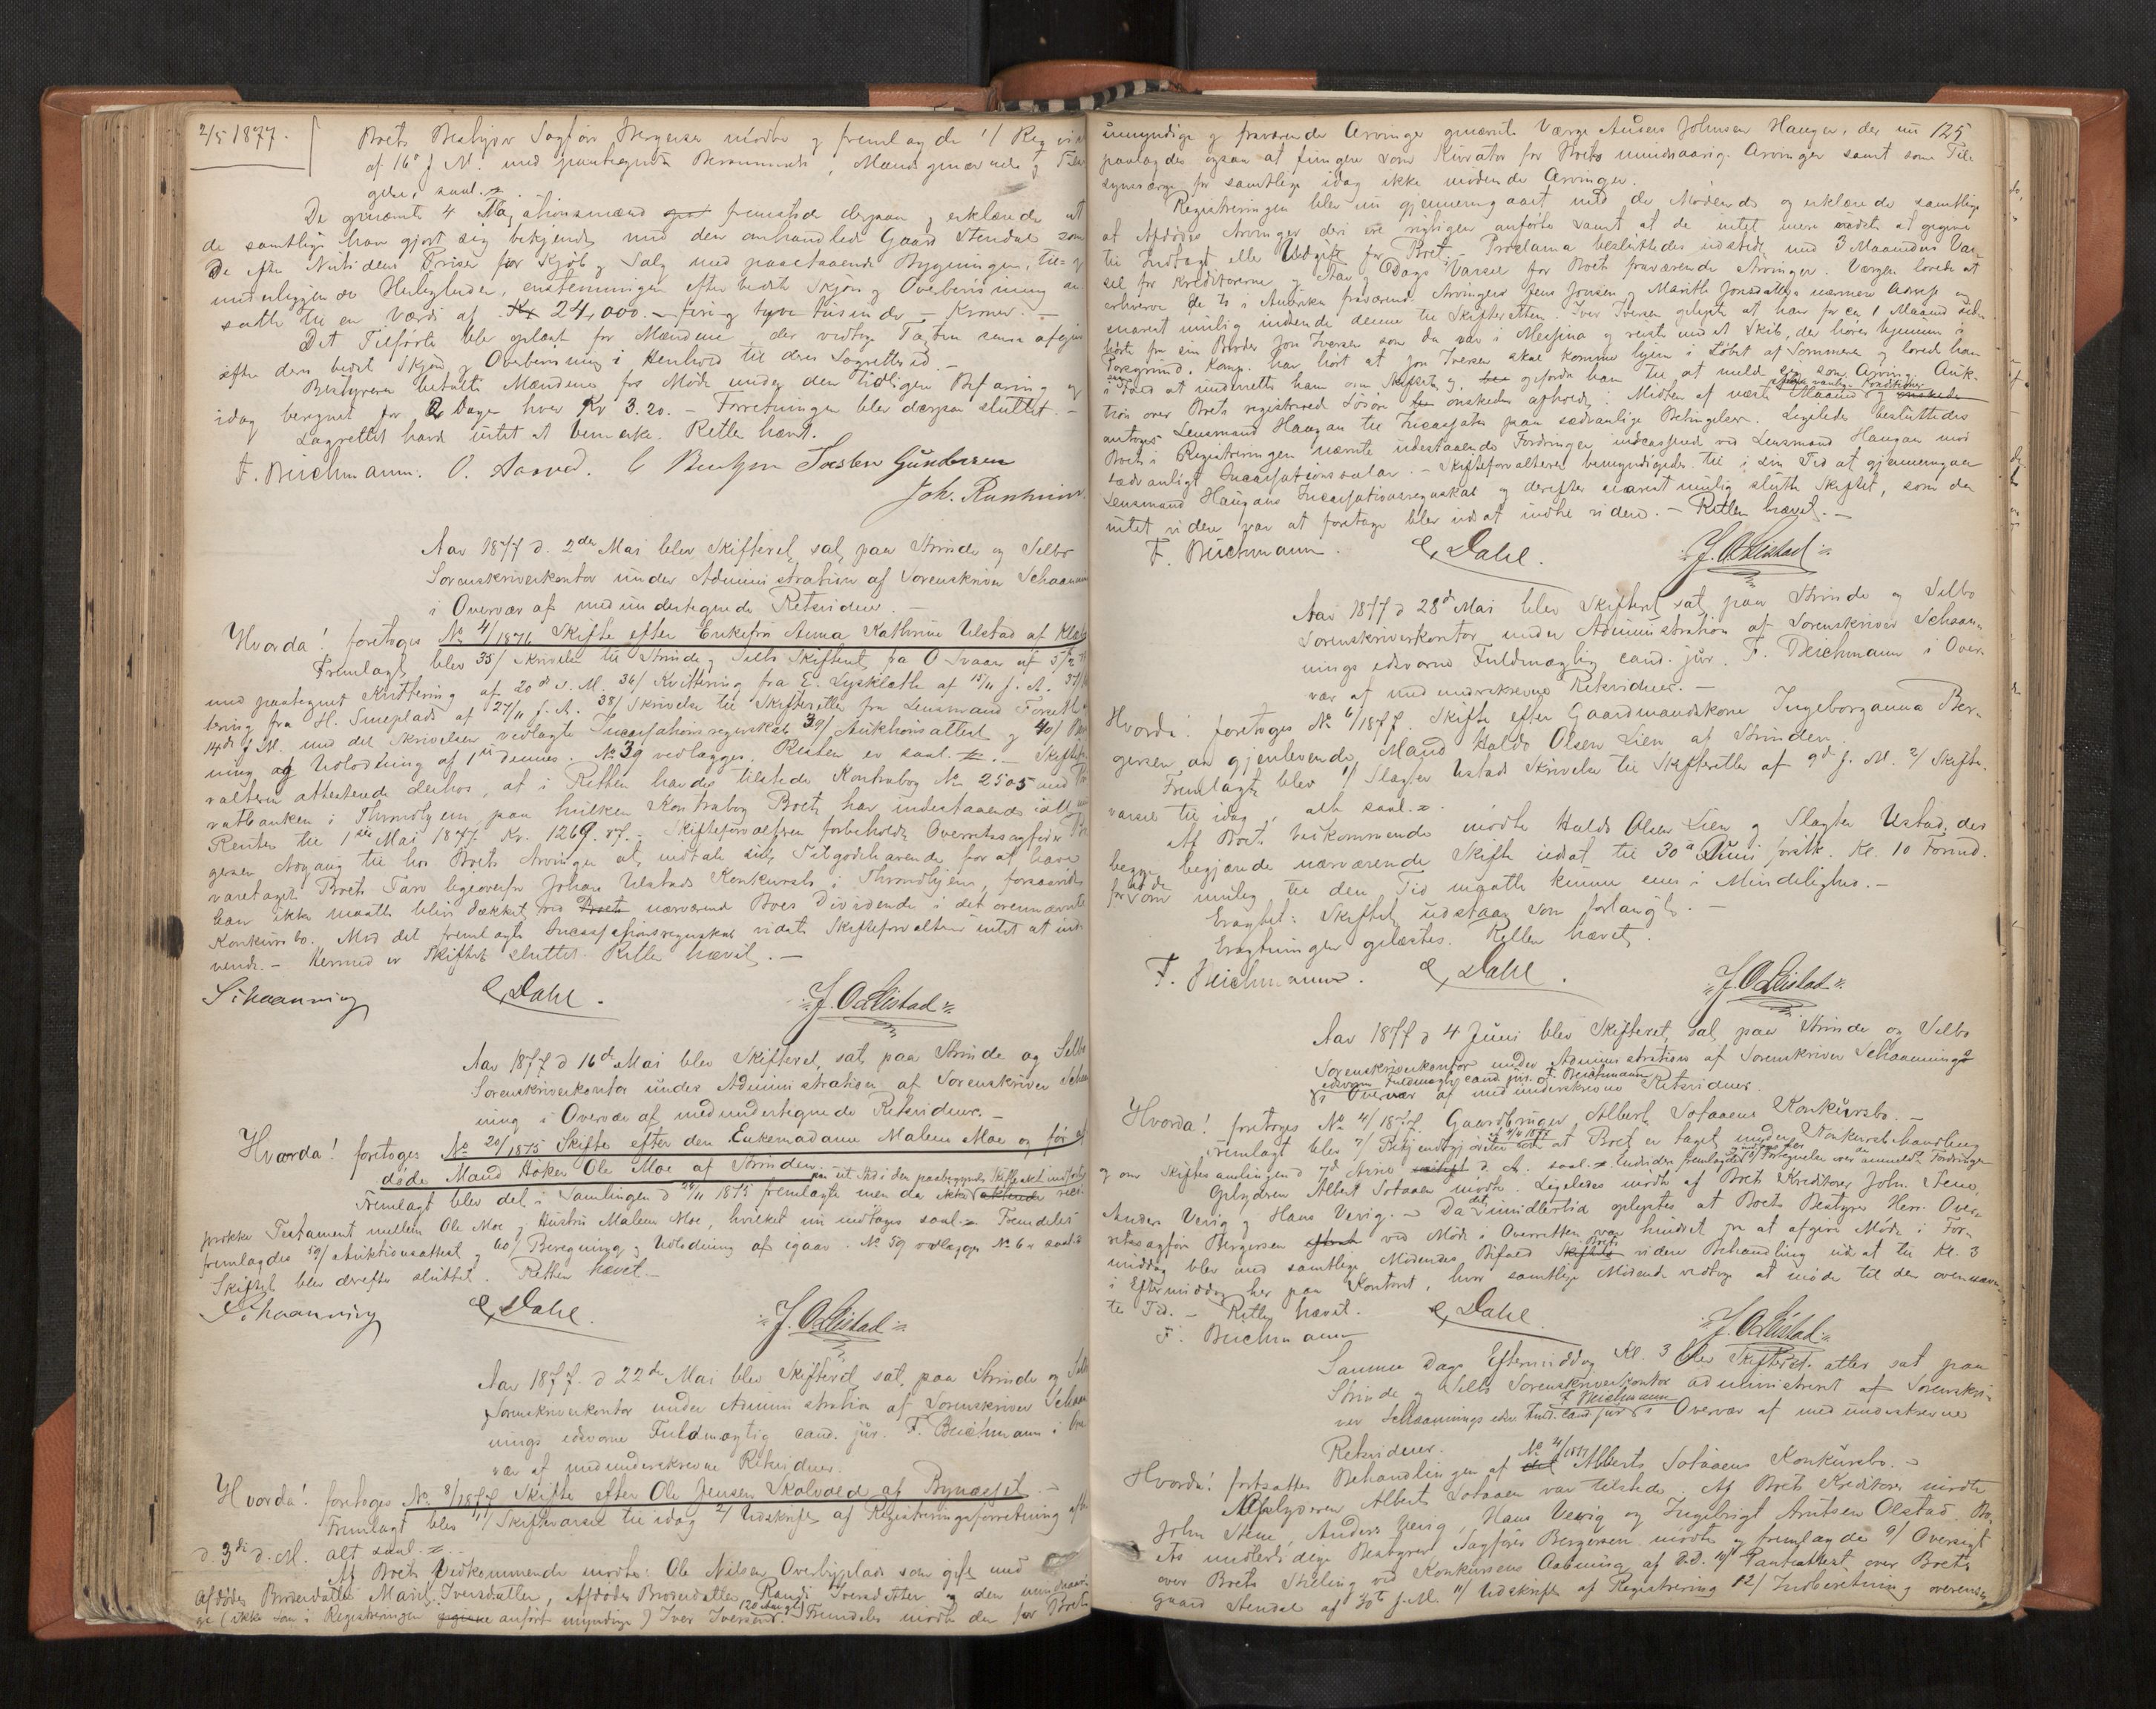 2/5 1877.
Boets Bestyrer Sagfører Bergersen mødte og fremlagde 1/
af 16de f. M. med paategnede Berammelse, Mændsopnævnelse og
gelse, saal.
De opnævnte 4 Taxationsmænd fremstod derpaa og erklærede at
de samtlige har gjort sig bekjendt med den omhandlede Gaard Stendal som
De efter Nutidens Priser for Kjøb og Salg med paastaaende Bygninger, til- og
underliggende Herligheder, enstemmigen efter bedste Skjøn og Overbevisning an-
satte til en Værdi af Kr 24,000. – fire og tyve tusinde – Kroner. –
Det Tilførte blev oplæst for Mændene der vedtog Taxten som afgivet
efter deres bedste Skjøn og Overbevisning i Henhold til deres Lagretted. –
Bestyreren betalte Mændene for Møde under den tidligere Befaring og
idag beregnet for 2 Dage hver Kr 3.20. – Forretningen blev derpaa sluttet. –
Lagrettet havde intet at bemerke. Retten hævet.
F. Beichmann. O. Aasved. Torsten Gundersen
Joh. Ranheim
Aar 1877 d. 2den Mai blev Skifteret sat paa Strinde og Selbo
Sorenskriverkontor under Administration af Sorenskriver Schaanning
i Overvær af medundertegnede Retsvidner. –
Hvorda! foretoges No 4/1876 Skifte efter Enkefru Anna Kathrine Ulstad af
Fremlagt blev 35/ Skrivelse til Strinde og Selbo Skifteret fra O Svaar af 5/2
med paategnet Kvittering af 20de s. M. 36/ Kvittering fra E. Lyskleth af 15/11 f. A. 37/
tering fra H. Sneplads af 27/11 f. A. 38/ Skrivelse til Skifteretten fra Lensmand
14de f. M. med det Skrivelsen vedlagte Incassationsregnskab 39/ Auktionsattest og 40/
ning og Udlodning af 1ste dennes. No 39 vedlægges. Resten er saal. – Skiftefor-
valteren attesterede derhos, at i Retten havdes tilstede Kontrabog No 2505 med
vatbanken i Throndhjem paa hvilken Kontrabog Boet har indestaaende
Renter til 1ste Mai 1877 Kr. 1269.87. – Skifteforvalteren forbeholdt Overretssagfører
gersen Adgang til hos Boets Arvinger at indtale sit Tilgodehavende for at have
varetaget Boets Tarv ligeoverfor Johan Ulstads Konkursbo i Throndhjem, forsaavidt
han ikke maatte blive dækket ved nærværende Boes Dividende i det ovennævnte
Konkursbo. Mod det fremlagte Incassationsregnskab vidste Skifteforvalteren intet at ind-
vende. – Hermed er Skiftet sluttet. Retten hævet. –
Schaanning E. Dahl. J. O. Leistad
Aar 1877 d 16de Mai blev Skifteret sat paa Strinde og Selbo
Sorenskriverkontor under Administration af Sorenskriver
ning i Overvær af medundertegnede Retsvidner. –
Hvorda! foretoges No 20/1875 Skifte efter den Enkemadame Maleen Moe og før
døde Mand Høker Ole Moe af Strinden.
Fremlagt blev det i Samlingen d 24/11 1875 fremlagte men da ikke
prokke Testament mellem Ole Moe og Hustru Maleen Moe, hvilket nu indtages saal. Fremdeles
fremlagdes 59/ Auktionsattest og 60/ Beregning og Udlodning af igaar. No 59 vedlægges No 60 saal.
Skiftet blev derefter sluttet. Retten hævet –
Schaanning E. Dahl. J. O. Leistad
Aar 1877 d 22de Mai blev Skifteret sat paa Strinde og
Sorenskriverkontor under Administration af Sorenskriver
nings edsvorne Fuldmægtig cand. jur. F. Beichmann i
vær af medunderskrevne Retsvidner.
Hvorda! foretoges No 8/1877 Skifte efter Ole Jensen Skolvold af Bynæsset. –
Fremlagt blev 1/ Skiftevarsel til idag 2/ Udskrift af Registreringsforretning
d. 3die d. M. alt saal. –
Af Boets Vedkommende mødte: Ole Nilsen Overbyplads som gift med
Afdødes Broderdatter Marit Iversdatter, Afdødes Broderdatter Randi Iversdatter og den
ge (ikke som i Registreringen anført myndige) Iver Iversen 120 Aar. Fremdeles mødte den for Boets
125
umyndige og fraværende Arvinger opnævnte Værge Anders Johnsen Haugen, der nu
paalagdes ogsaa at fungere som Kurator for Boets mindreaarige Arvinger samt som Til-
synsværge for samtlige idag ikke mødende Arvinger.
Registreringen blev nu gjennemgaaet med de Mødende og erklærede samtlige
at Afdødes Arvinger deri ere rigtigen anførte samt at de intet mere vidste at opgive
til Indtægt eller Udgift for Boet. – Proclama besluttedes udstedt med 3 Maaneders Var-
sel for Kreditorerne og Aar og Dags Varsel for Boets fraværende Arvinger. Værgen lovede at
erhverve de to i Amerika fraværende Arvingers Jens Jonsen og Marith Jonsdatters nærmere Adresse og
snarest mulig indsende denne til Skifteretten. Iver Iversen oplyste at han for ca 1 Maaned siden
hørte fra sin Broder Jon Iversen som da var i Messina og reiste med et Skib, der hører hjemme i
Porsgrund. Komp. har hørt at Jon Iversen skal komme hjem i Løbet af Sommeren og lovede han
i Tilfælde at underrette ham om Skiftet og opfordre ham til at melde sig som Arving. Auk-
tion over Boets registrerede Løsøre ønskedes afholdt i Midten af næste Maaned og
antoges Lensmand Haugan til Incassator paa sædvanlige Betingelser. Ligeledes besluttedes
Boets i Registreringen nævnte udestaaende Fordringer indcasserede ved Lensmand Haugan mod
sædvanligt Incassationssalar. – Skifteforvalteren bemyndigedes til i sin Tid at gjennemgaa
Lensmand Haugans Incassationsregnskab og derefter snarest mulig slutte Skiftet, som da
intet videre var at foretage blev udsat indtil videre. – Retten hævet. –
F. Beichmann. E. Dahl. J. O. Leistad
Aar 1877 d 28de Mai blev Skifteret sat paa Strinde og Selbo
Sorenskriverkontor under Administration af Sorenskriver Schaan-
nings edsvorne Fuldmægtig cand. jur. F. Beichmann i Over-
vær af medunderskrevne Retsvidner. –
Hvorda! foretoges No 6/1877. Skifte efter Gaardmandskone Ingeborganna Ber-
gersen og gjenlevende Mand Haldo Olsen Lien af Strinden.
Fremlagt blev 1/ Slagter Ustads Skrivelse til Skifteretten af 9de f. M. 2/ Skifte-
varsel til idag, alt saal.
Af Boets Vedkommende mødte Haldo Olsen Lien og Slagter Ustad, der
begge begjærede nærværende Skifte udsat til 30te Juni førstk. Kl. 10 Formd.
for om mulig de til den Tid maatte kunne enes i Mindelighed. –
Eragtet: Skiftet udstaar som forlangt. –
Eragtningen oplæstes. Retten hævet.
F. Beichmann. E. Dahl. J. O. Leistad
Aar 1877 d 4 Juni blev Skifteret sat paa Strinde og Selbo
Sorenskriverkontor under Administration af Sorenskriver Schaannings
edsvorne Fuldmægtig cand. jur. F. Beichmann
i Overvær af medunderskrevne Retsvidner.
Hvorda! foretoges No 4/1877. Gaardbruger Albert Sotaaens Konkursbo. –
Fremlagt blev 7/ Bekjendtgjørelse om at Boet er taget under Konkursbehandling
og om Skiftesamling d. A. saal. Endvidere fremlagdes 8/ Fortegnelse over de anmeldte Fordringer
Opbyderen Albert Sotaaen mødte. Ligeledes mødte af Boets Kreditorer John Stene,
Anders Verig og Hans Verig. – Da det imidlertid oplystes at Boets Bestyrer Herr Over-
retssagfører Bergersen ved Møde i Overretten var hindret fra at afgive Møde i For-
middag blev med samtlige Mødendes Bifald Boets videre Behandling udsat til Kl. 3
i Eftermiddag her paa Kontoret, hvor samtlige Mødende vedtog at møde til den ovennævn-
te Tid. – Retten hævet.
F. Beichmann E. Dahl. J. O. Leistad
Samme Dags Eftermiddag Kl. 3 blev Skifteret atter sat paa
Strinde og Selbo Sorenskriverkontor administreret af Sorenskri-
ver Schaannings edsv. Fuldm. cand. jur. F. Beichmann i Overvær af medunderskrevne
Retsvidner.
Hvorda! fortsattes Behandlingen af No 4/1877 Alberts Sotaaens Konkursbo. –
Opbyderen Albert Sotaaen var tilstede. Af Boets Kreditorer mødte
John Stene, Anders Verig, Hans Verig og Ingebrigt Arntsen Olstad. Bo-
ets midlertidige Bestyrer Sagfører Bergersen mødte og fremlagde 9/ Oversigt
over Boets Stilling ved Konkursens Aabning af d.d. 10/ Pantattest over Boets
Gaard Stendal af 30te f. M. 11/ Udskrift af Registrering 12/ Indberetning